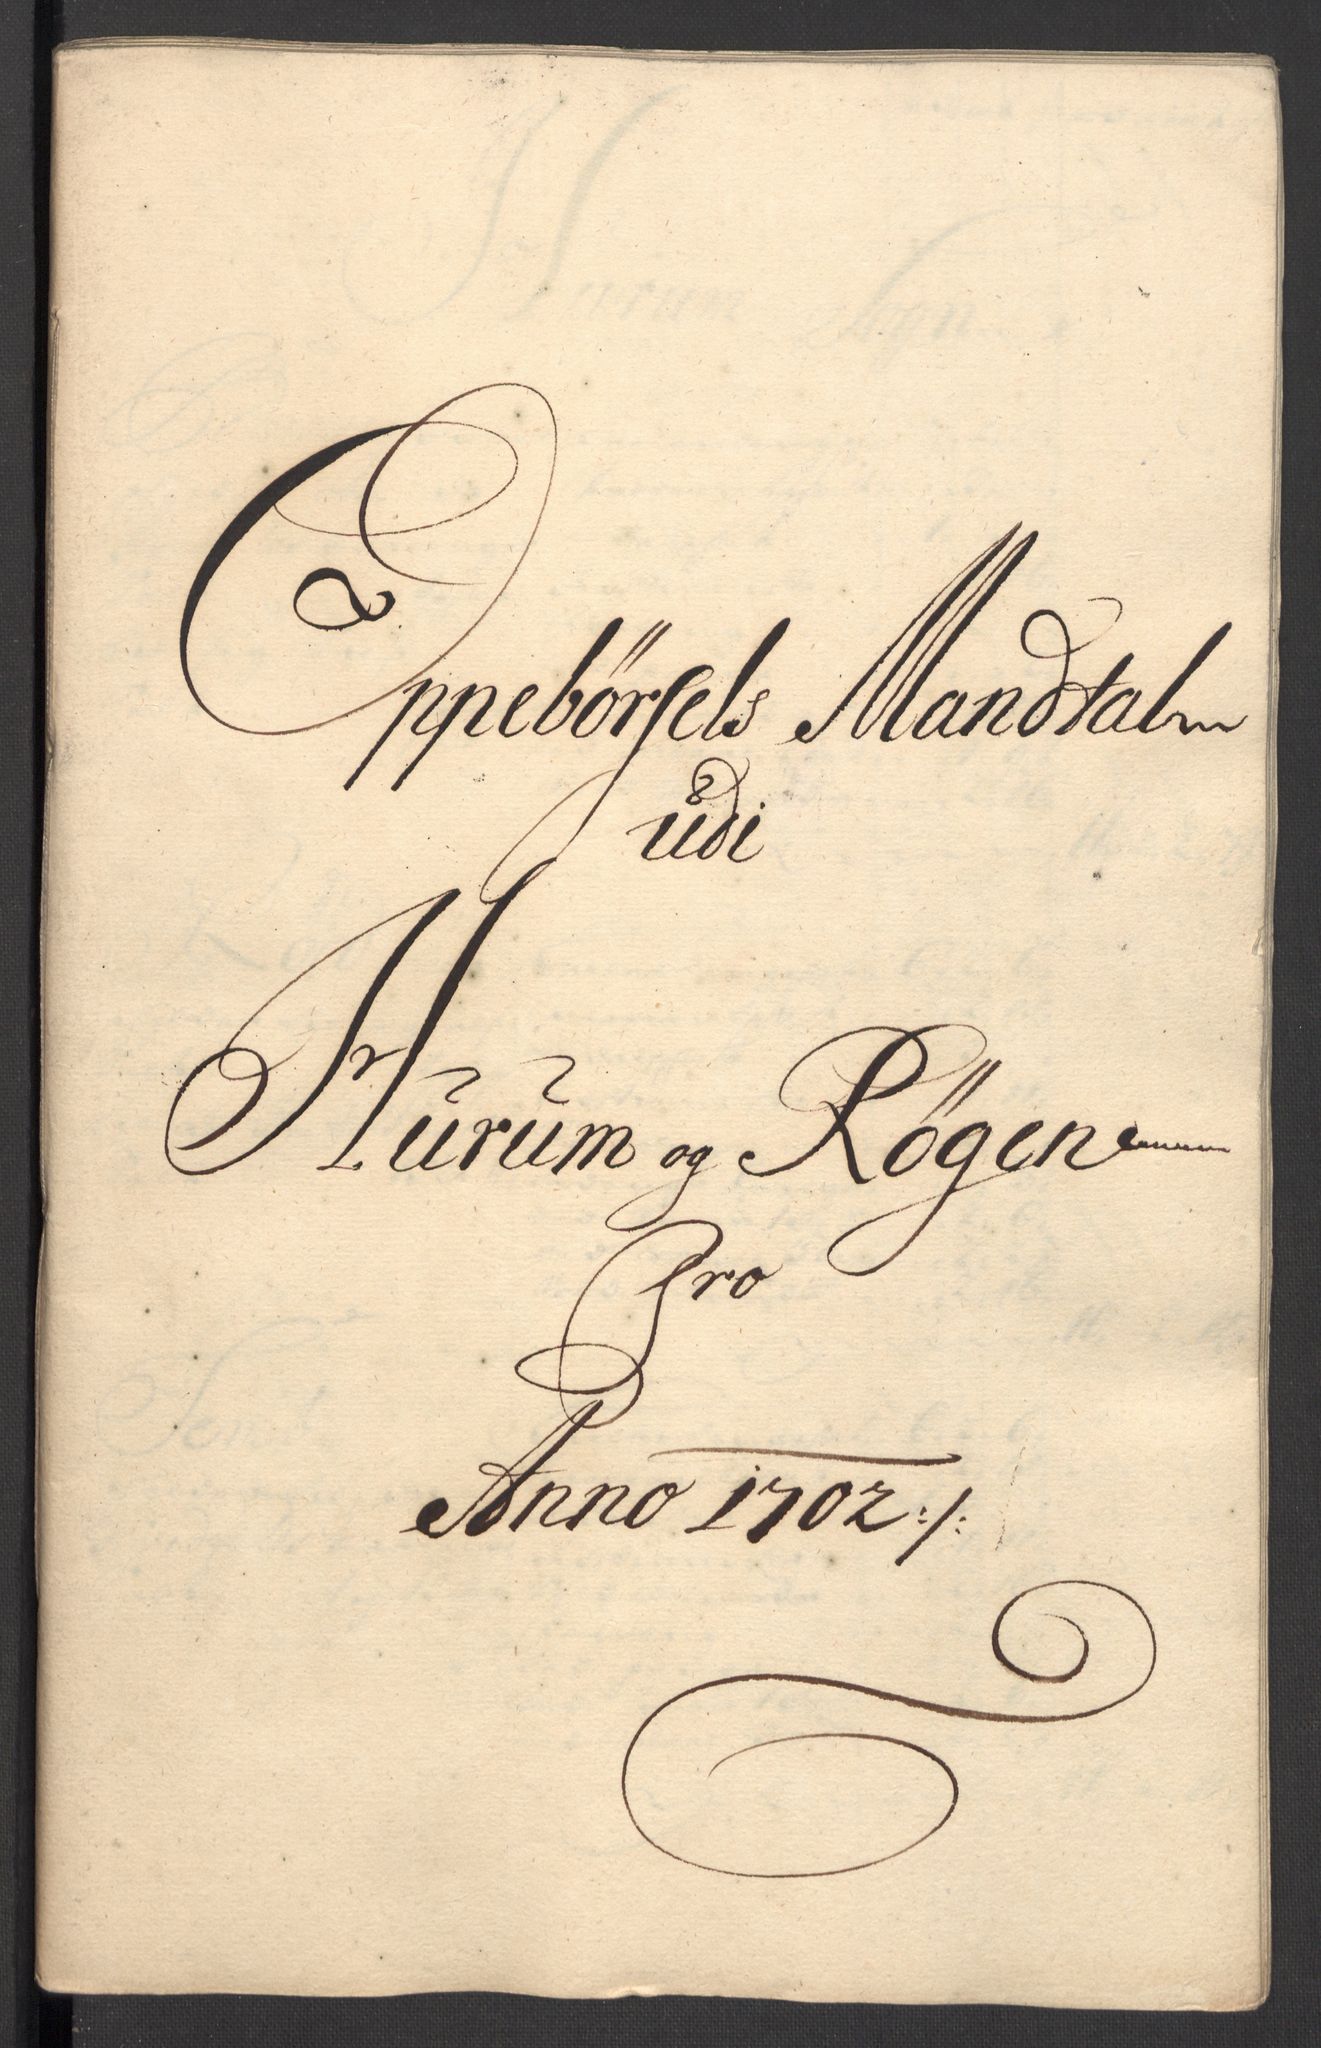 Oppebörsels Mandtal
udi
Hurum og Rögen
Pro
Anno 1702 :/: